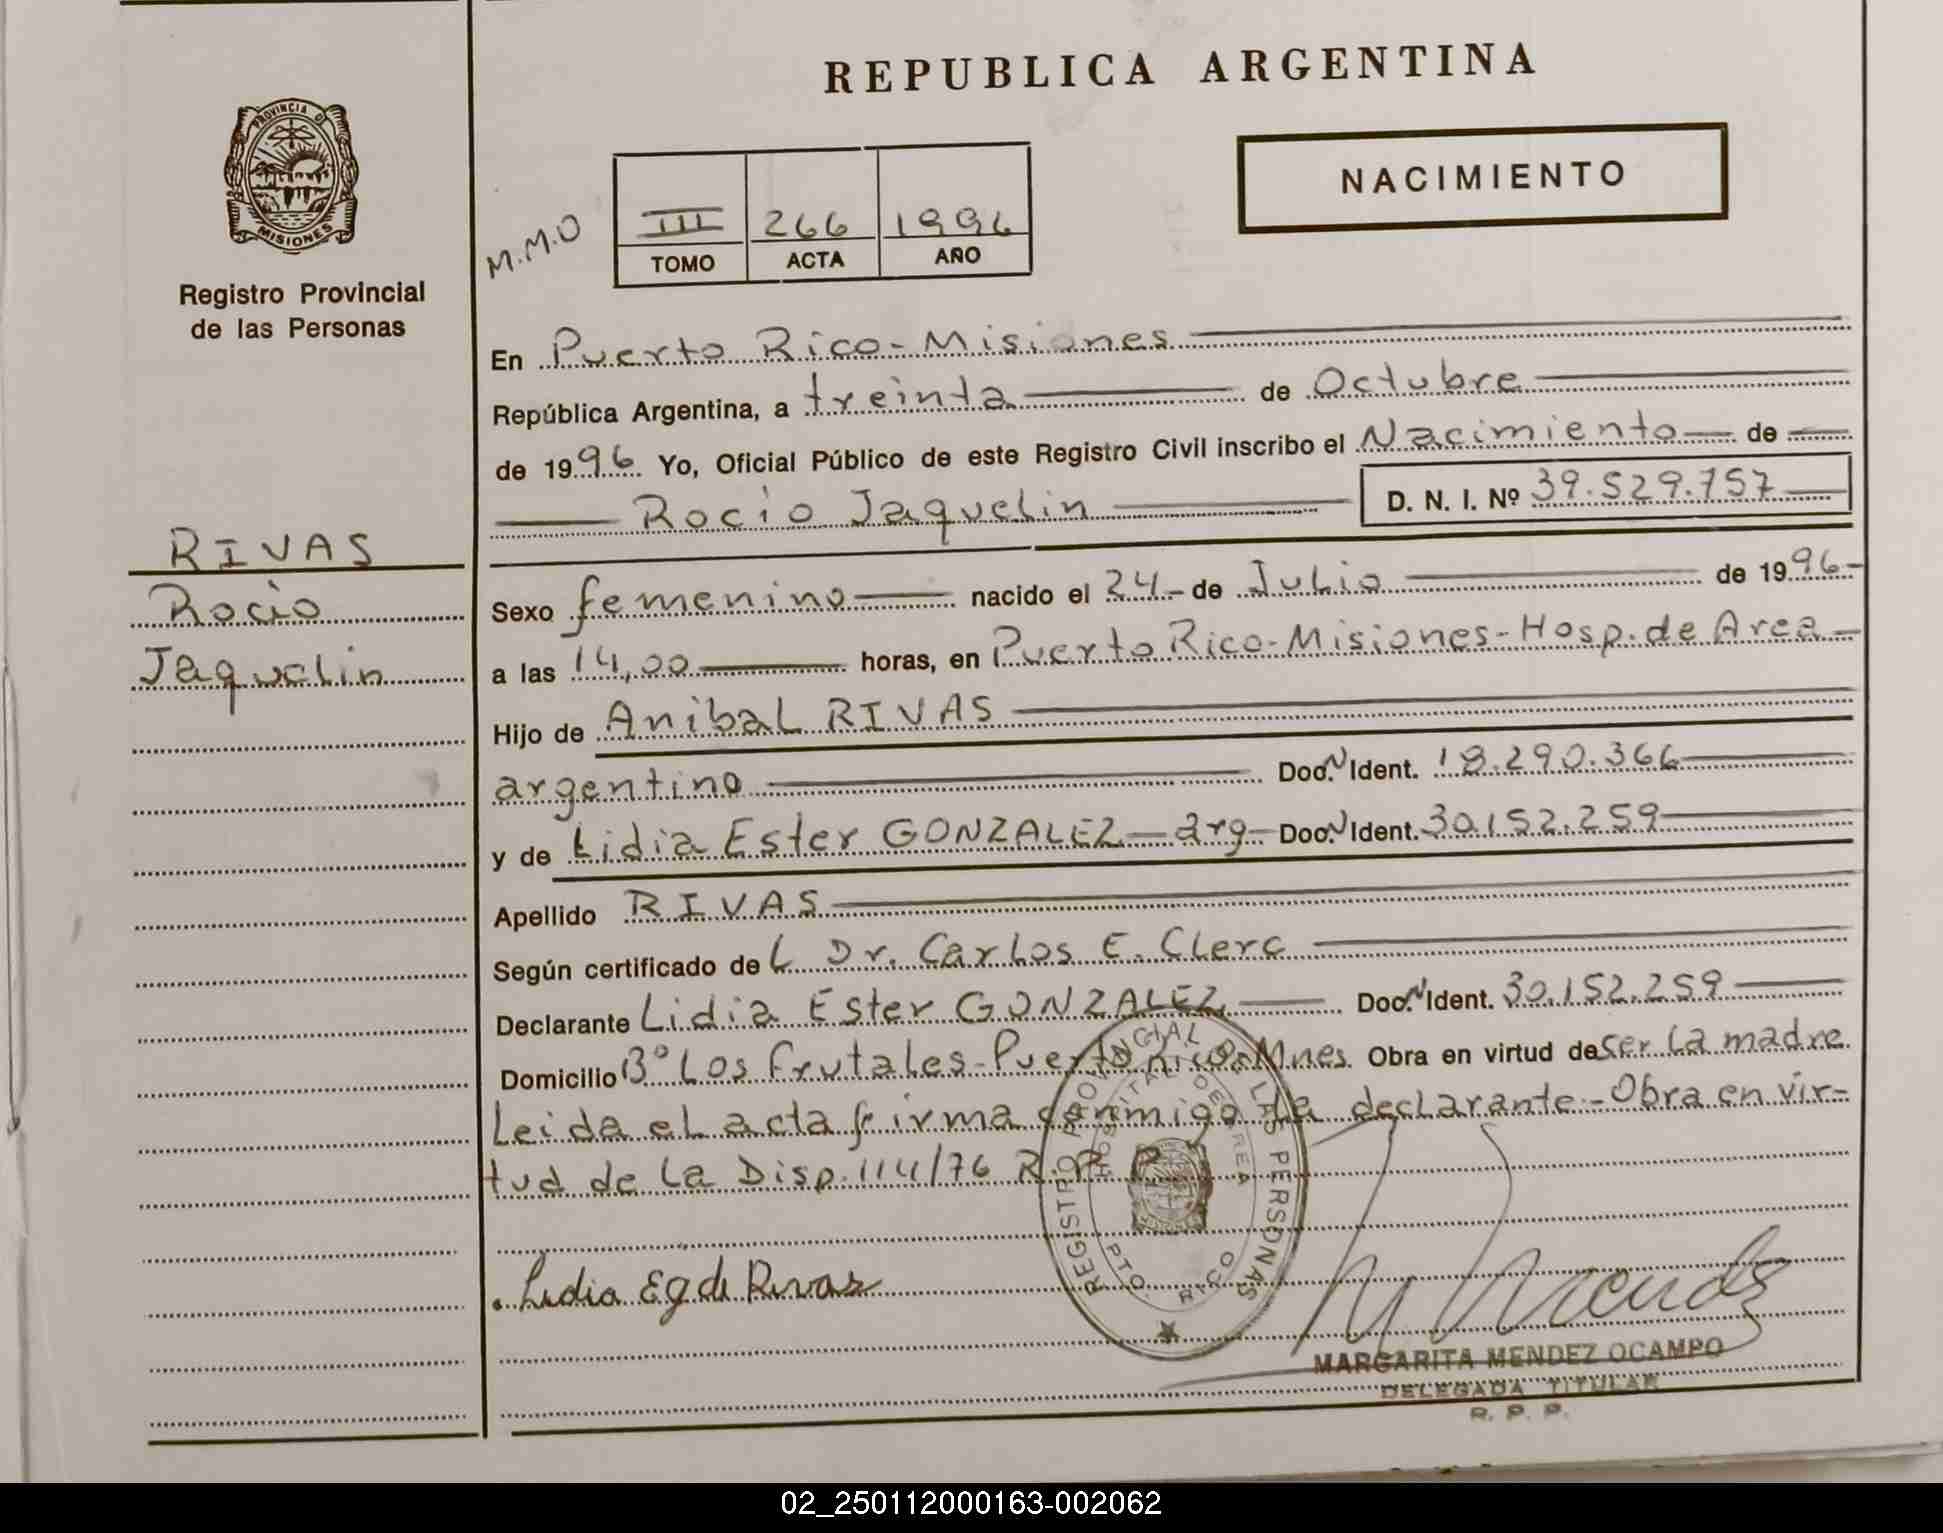 REPUBLICA ARGENTINA
PROVINCIA D
MISIONES
Registro Provincial
de las Personas
NACIMIENTO
M.M.O
III 266 1996
TOMO ACTA AÑO
En Puerto Rico - Misiones
República Argentina, a treinta de Octubre
de 1996 Yo, Oficial Público de este Registro Civil inscribo el Nacimiento de
Rocio Jaquelin D. N. I. Nº 39.529.757
RIVAS
Rocio
Jaquelin
Sexo femenino nacido el 24 de Julio de 1996
a las 14,00 horas, en Puerto Rico-Misiones-Hosp. de Area
Hijo de Anibal RIVAS
argentino Doc. N Ident. 18.290.366
y de Lidia Ester GONZALEZ - arg - Doc. N Ident. 30.152.259
Apellido RIVAS
Según certificado de L Dr. Carlos E. Clerc
Declarante Lidia Ester GONZALEZ Doc. N Ident. 30.152.259
Domicilio Bº Los Frutales-Puerto Rico-Mnes. Obra en virtud de ser la madre
Leida el acta firma conmigo la declarante - Obra en vir-
tud de la Disp. 114/76 R. P. P.
REGISTRO PROVINCIAL DE LAS PERSONAS
HOSPITAL DE AREA
PTO. RICO
Lidia E g de Rivas
M Mendez
MARGARITA MENDEZ OCAMPO
DELEGADA TITULAR
R. P. P.
02_250112000163-002062